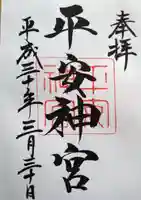 奉拝
平安神宮
平成三十年三月三十日